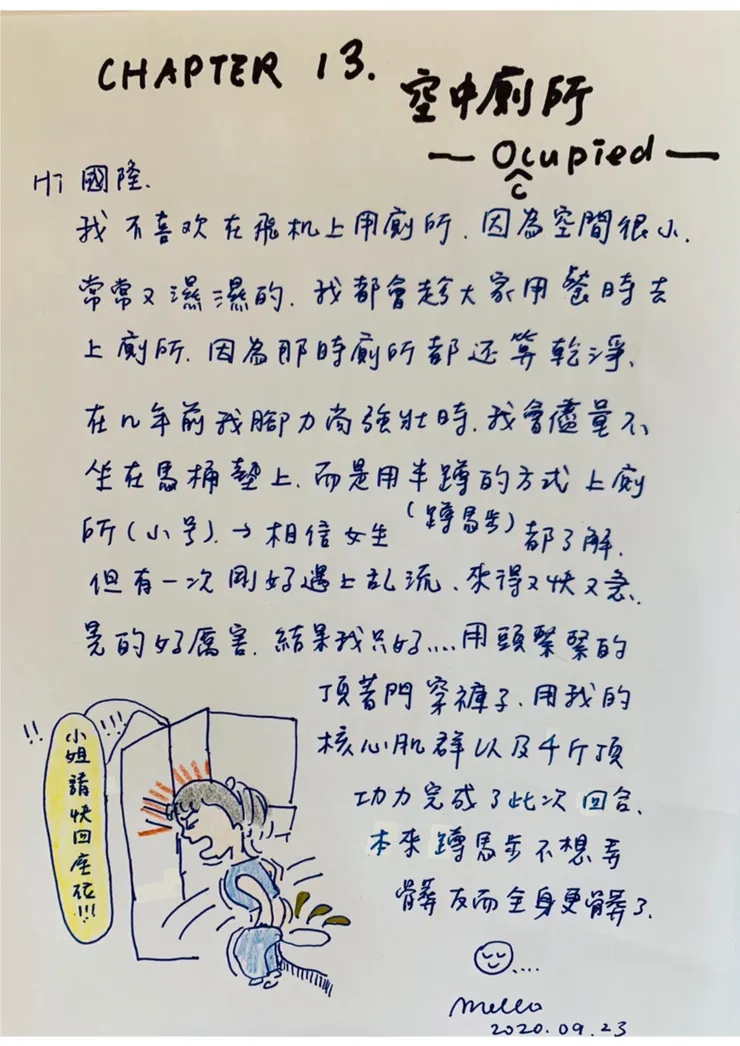 CHAPTER 13.
空中廁所
— Ocupied —
c
Hi 國隆.
我不喜欢在飛机上用廁所. 因為空間很小.
常常又濕濕的. 我都會趁大家用餐時去
上廁所. 因為那時廁所都还算乾淨.
在n年前我腳力尚強壯時. 我會儘量不
坐在馬桶墊上. 而是用半蹲的方式上廁
(蹲馬步)
所(小号). → 相信女生都了解.
但有一次剛好遇上乱流. 來得又快又急.
晃的好厲害. 結果我只好.... 用頭緊緊的
頂著門穿褲子. 用我的
核心肌群以及千斤頂
功力完成了此次回合.
本來蹲馬步不想弄
髒反而全身更髒了.
!! 小姐請快回座位!!! !!!
....
Mello
2020.09.23